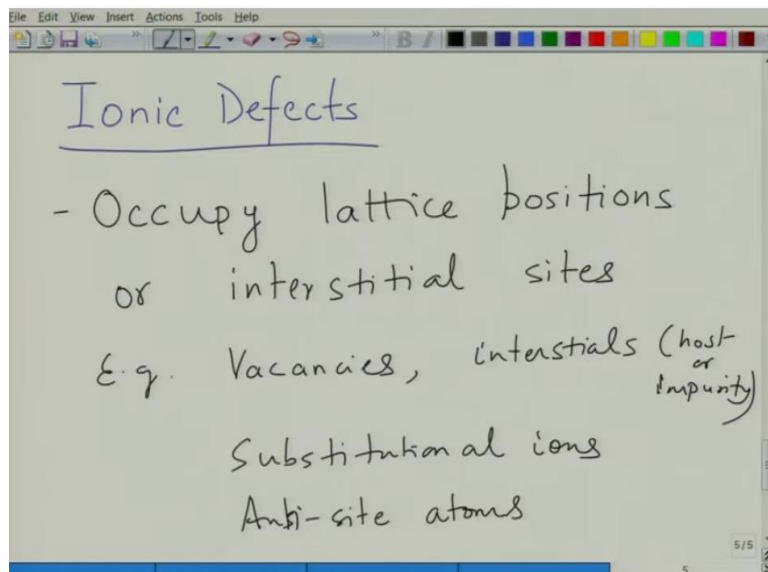 File Edit View Insert Actions Tools Help
B I
Ionic Defects
- Occupy lattice positions
or interstitial sites
E.g. Vacancies, interstials (host
or
impurity)
Substitutional ions
Anti-site atoms
5/5
5